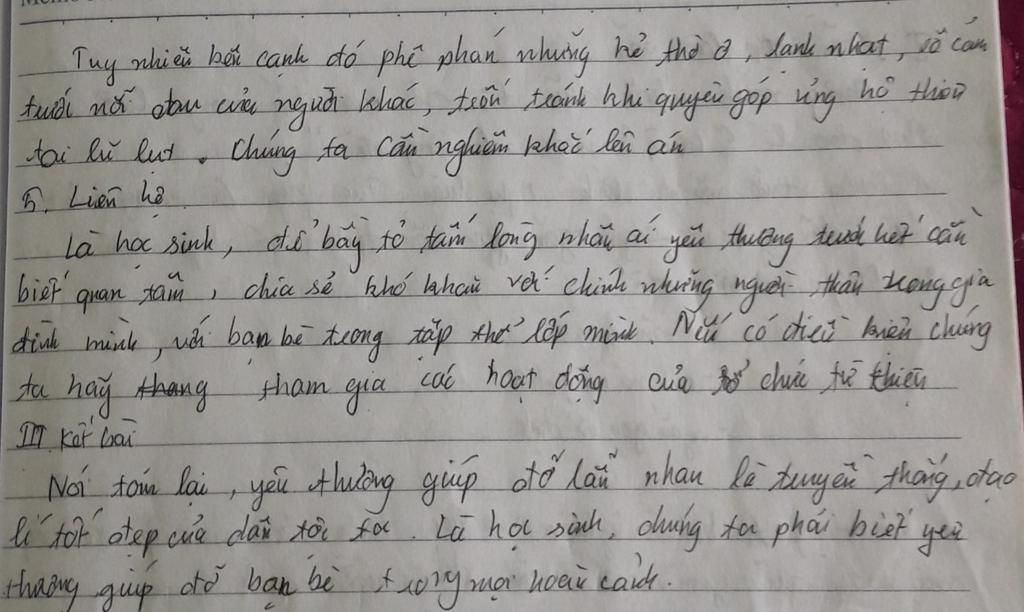 Tuy nhiên bên cạnh đó phê phán những kẻ thờ ơ, lạnh nhạt, vô cảm
trước nỗi đau của người khác, trốn tránh khi quyên góp ủng hộ thiên
tai lũ lụt. Chúng ta cần nghiêm khắc lên án
5. Liên hệ
Là học sinh, để bày tỏ tấm lòng nhân ái yêu thương trước hết cần
biết quan tâm, chia sẻ khó khăn với chính những người thân trong gia
đình mình, với bạn bè trong tập thể lớp mình. Nếu có điều kiện chúng
ta hãy thang tham gia các hoạt động của tổ chức từ thiện
III Kết bài
Nói tóm lại, yêu thương giúp đỡ lẫn nhau là truyền thống, đạo
lí tốt đẹp của dân tộc ta. Là học sinh, chúng ta phải biết yêu
thương giúp đỡ bạn bè trong mọi hoàn cảnh.